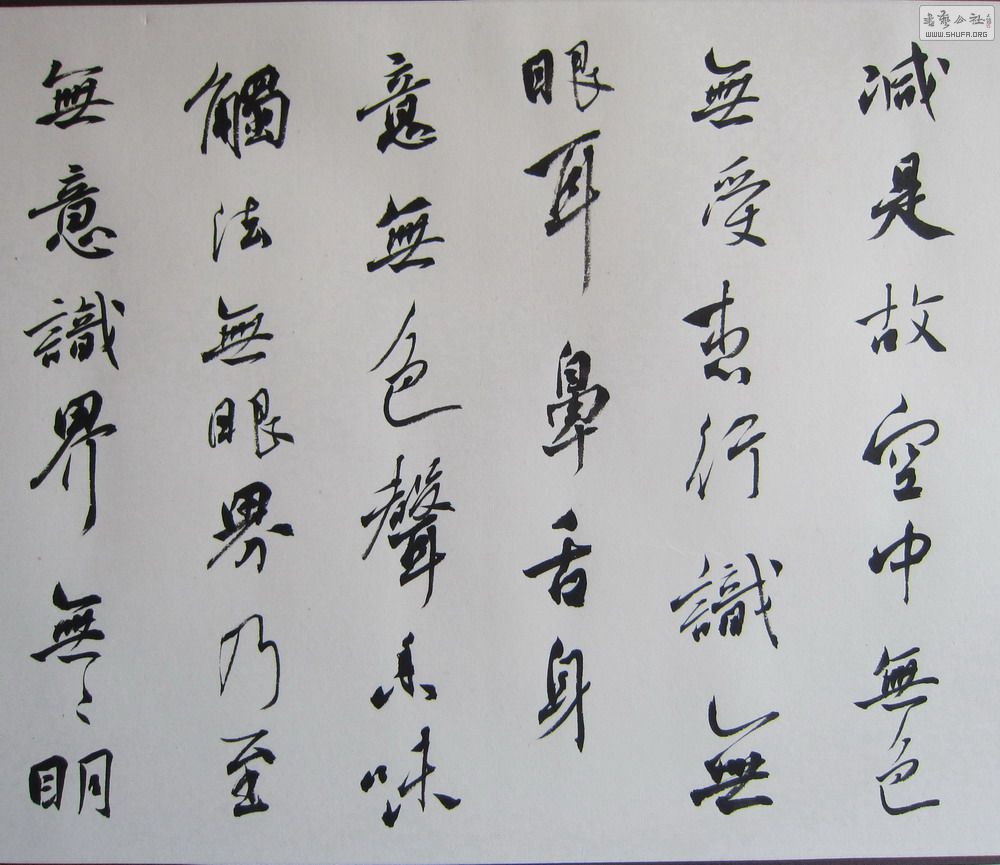 減是故空中無色
無受想行識無
眼耳鼻舌身
意無色聲香味
觸法無眼界乃至
無意識界無〻明
書藝公社
WWW.SHUFA.ORG